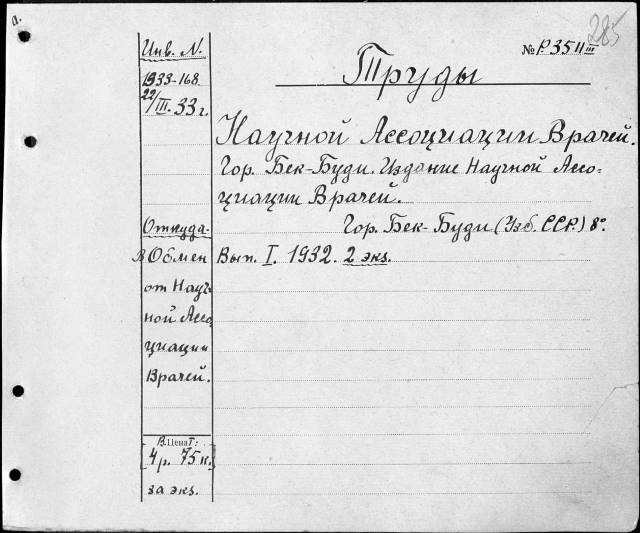 а.
285
Инв. N.
№ Р.3511 III
Труды
1933-168.
22/III. 33 г.
Научной Ассоциации Врачей.
Гор. Бек-Буди. Издание Научной Ассо-
циации Врачей.
Откуда
Гор. Бек-Буди (Узб. ССР.) 8°
В Обмен
Вып. I. 1932. 2 экз.
от Науч-
ной Ассо
циации
Врачей.
В. Цена Т:
4 р. 75 к.
за экз.